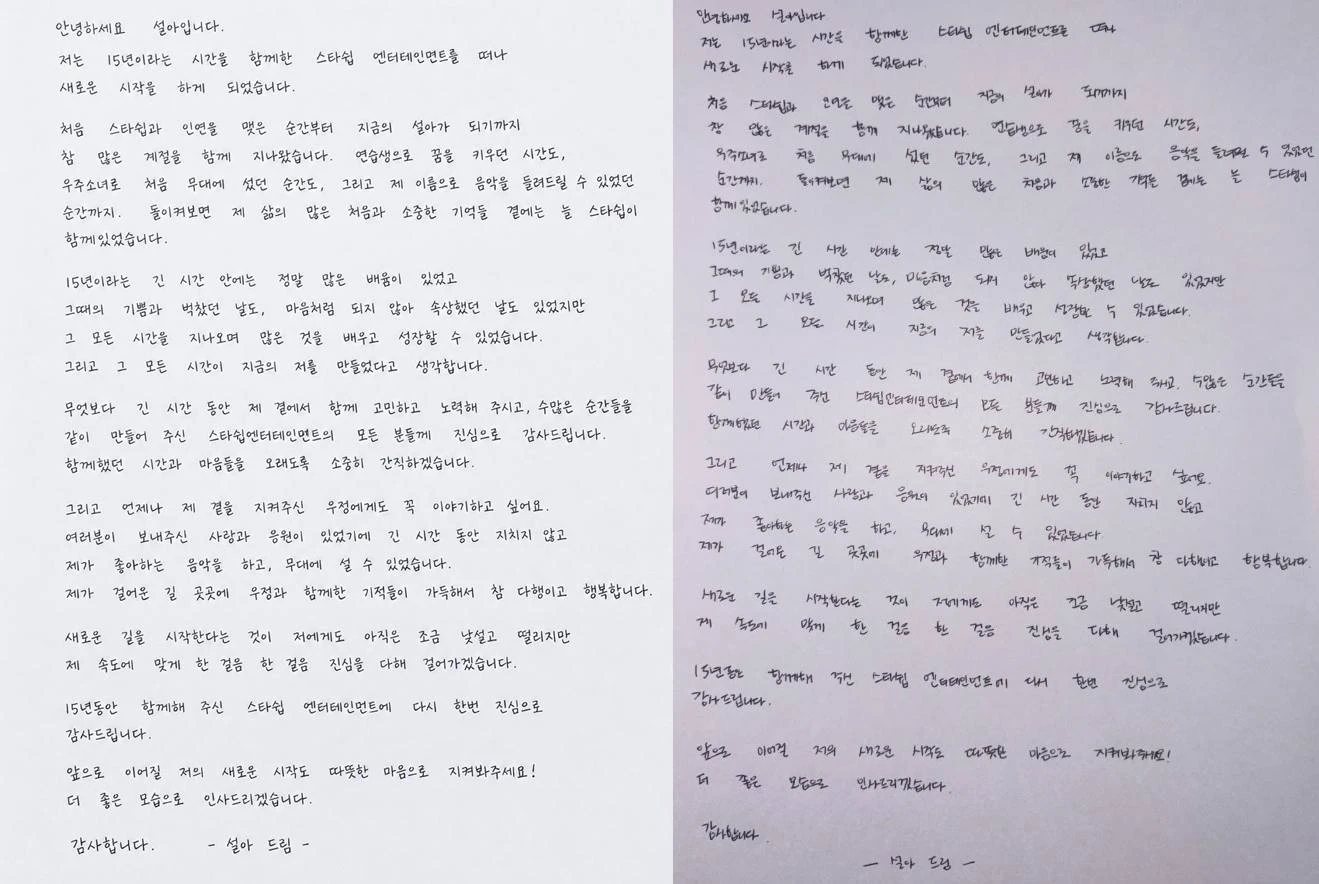 안녕하세요 설아입니다.
저는 15년이라는 시간을 함께한 스타쉽 엔터테인먼트를 떠나
새로운 시작을 하게 되었습니다.
처음 스타쉽과 인연을 맺은 순간부터 지금의 설아가 되기까지
참 많은 계절을 함께 지나왔습니다. 연습생으로 꿈을 키우던 시간도,
우주소녀로 처음 무대에 섰던 순간도, 그리고 제 이름으로 음악을 들려드릴 수 있었던
순간까지. 돌이켜보면 제 삶의 많은 처음과 소중한 기억들 곁에는 늘 스타쉽이
함께있었습니다.
15년이라는 긴 시간 안에는 정말 많은 배움이 있었고
그때의 기쁨과 벅찼던 날도, 마음처럼 되지 않아 속상했던 날도 있었지만
그 모든 시간을 지나오며 많은 것을 배우고 성장할 수 있었습니다.
그리고 그 모든 시간이 지금의 저를 만들었다고 생각합니다.
무엇보다 긴 시간 동안 제 곁에서 함께 고민하고 노력해 주시고, 수많은 순간들을
같이 만들어 주신 스타쉽엔터테인먼트의 모든 분들께 진심으로 감사드립니다.
함께했던 시간과 마음들을 오래도록 소중히 간직하겠습니다.
그리고 언제나 제 곁을 지켜주신 우정에게도 꼭 이야기하고 싶어요.
여러분이 보내주신 사랑과 응원이 있었기에 긴 시간 동안 지치지 않고
제가 좋아하는 음악을 하고, 무대에 설 수 있었습니다.
제가 걸어온 길 곳곳에 우정과 함께한 기적들이 가득해서 참 다행이고 행복합니다.
새로운 길을 시작한다는 것이 저에게도 아직은 조금 낯설고 떨리지만
제 속도에 맞게 한 걸음 한 걸음 진심을 다해 걸어가겠습니다.
15년동안 함께해 주신 스타쉽 엔터테인먼트에 다시 한번 진심으로
감사드립니다.
앞으로 이어질 저의 새로운 시작도 따뜻한 마음으로 지켜봐주세요!
더 좋은 모습으로 인사드리겠습니다.
감사합니다. - 설아 드림 -
안녕하세요 설아입니다.
저는 15년이라는 시간을 함께한 스타쉽 엔터테인먼트를 떠나
새로운 시작을 하게 되었습니다.
처음 스타쉽과 인연을 맺은 순간부터 지금의 설아가 되기까지
참 많은 계절을 함께 지나왔습니다. 연습생으로 꿈을 키우던 시간도,
우주소녀로 처음 무대에 섰던 순간도, 그리고 제 이름으로 음악을 들려드릴 수 있었던
순간까지. 돌이켜보면 제 삶의 많은 처음과 소중한 기억들 곁에는 늘 스타쉽이
함께있었습니다.
15년이라는 긴 시간 안에는 정말 많은 배움이 있었고
그때의 기쁨과 벅찼던 날도, 마음처럼 되지 않아 속상했던 날도 있었지만
그 모든 시간을 지나오며 많은 것을 배우고 성장할 수 있었습니다.
그리고 그 모든 시간이 지금의 저를 만들었다고 생각합니다.
무엇보다 긴 시간 동안 제 곁에서 함께 고민하고 노력해 주시고, 수많은 순간들을
같이 만들어 주신 스타쉽엔터테인먼트의 모든 분들께 진심으로 감사드립니다.
함께했던 시간과 마음들을 오래도록 소중히 간직하겠습니다.
그리고 언제나 제 곁을 지켜주신 우정에게도 꼭 이야기하고 싶어요.
여러분이 보내주신 사랑과 응원이 있었기에 긴 시간 동안 지치지 않고
제가 좋아하는 음악을 하고, 무대에 설 수 있었습니다.
제가 걸어온 길 곳곳에 우정과 함께한 기적들이 가득해서 참 다행이고 행복합니다.
새로운 길을 시작한다는 것이 저에게도 아직은 조금 낯설고 떨리지만
제 속도에 맞게 한 걸음 한 걸음 진심을 다해 걸어가겠습니다.
15년동안 함께해 주신 스타쉽 엔터테인먼트에 다시 한번 진심으로
감사드립니다.
앞으로 이어질 저의 새로운 시작도 따뜻한 마음으로 지켜봐주세요!
더 좋은 모습으로 인사드리겠습니다.
감사합니다.
- 설아 드림 -